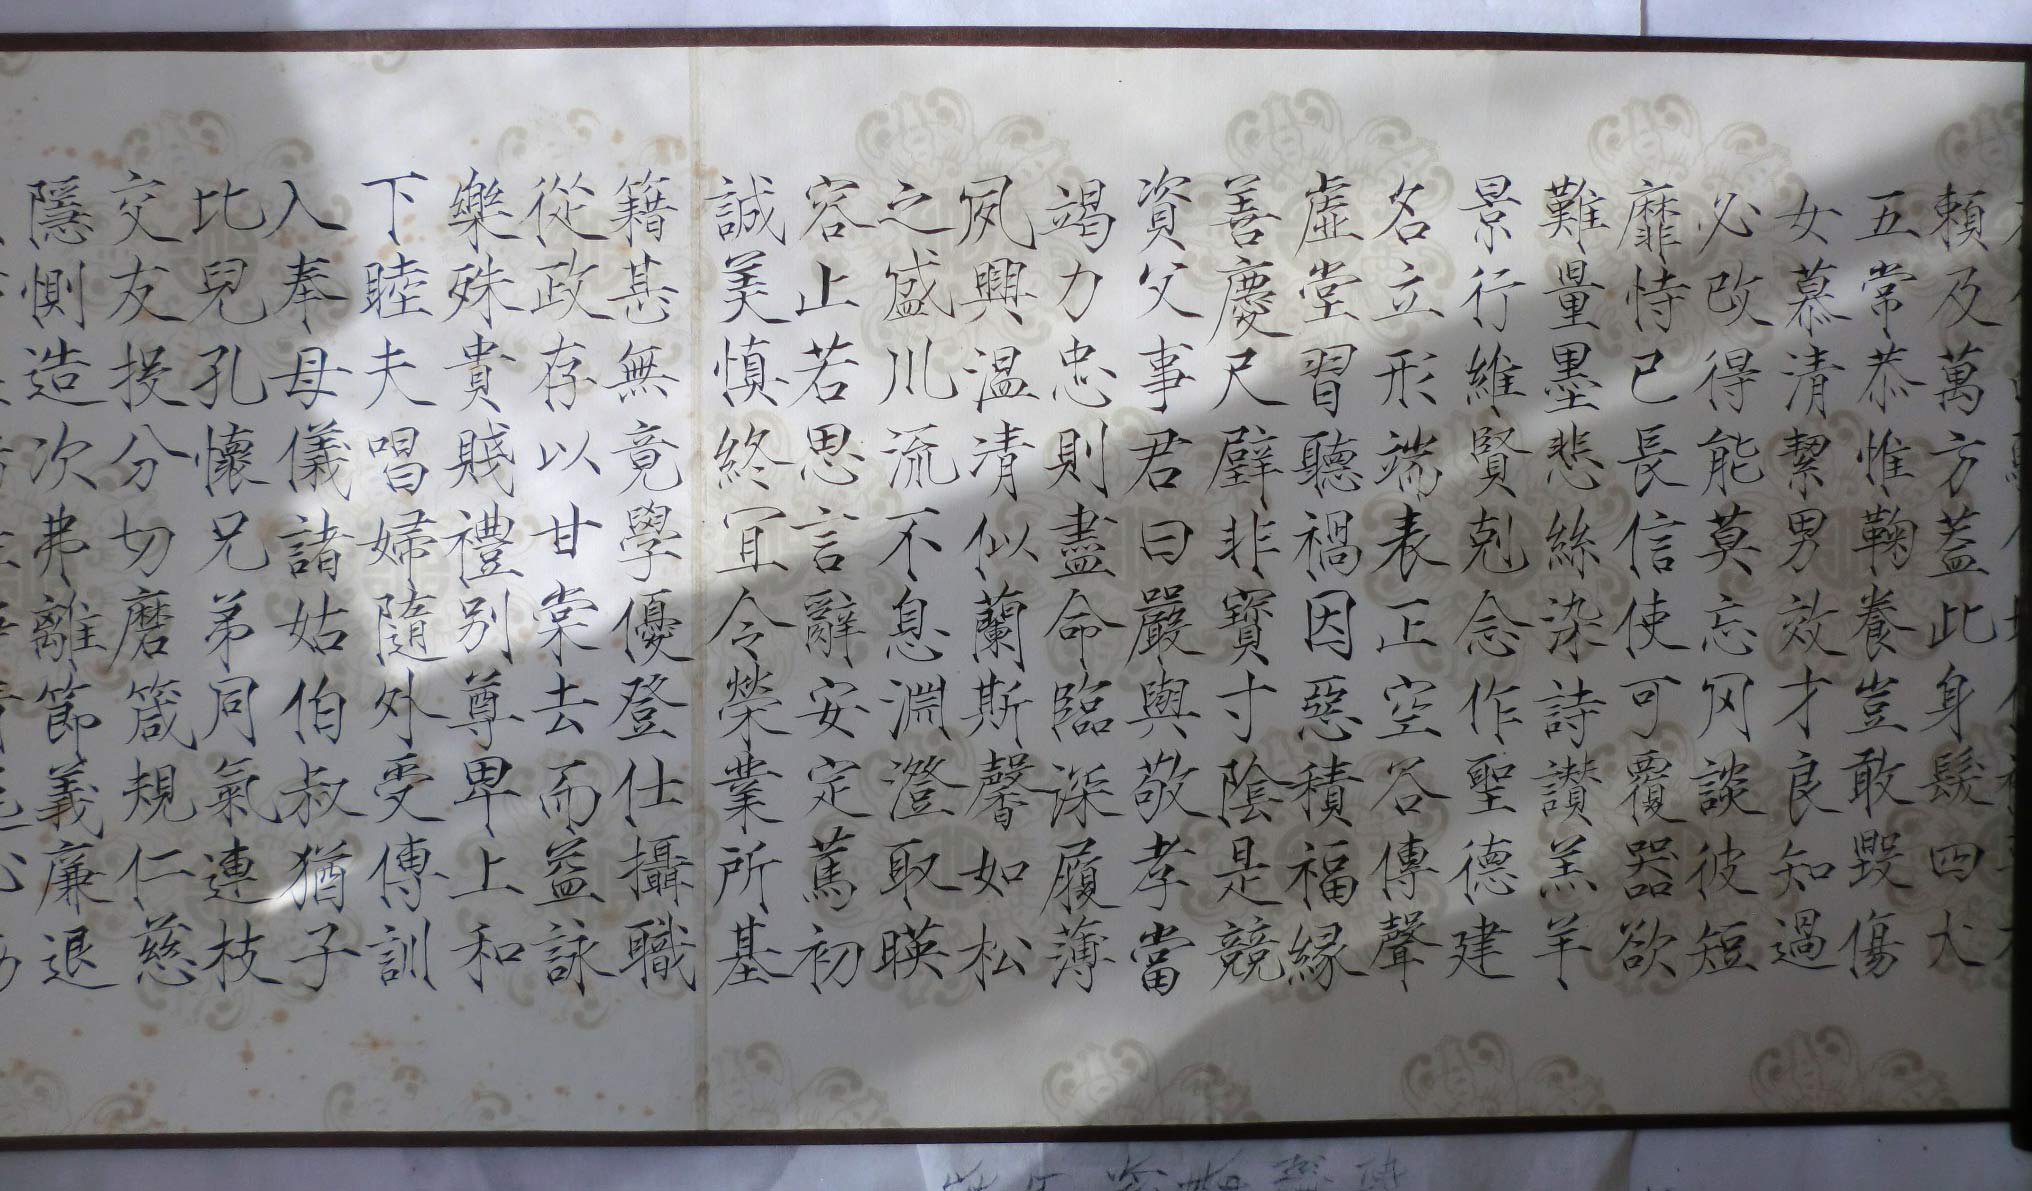 賴及萬方蓋此身髮四大
五常恭惟鞠養豈敢毀傷
女慕清絜男效才良知過
必改得能莫忘罔談彼短
靡恃己長信使可覆器欲
難量墨悲絲染詩讚羔羊
景行維賢剋念作聖德建
名立形端表正空谷傳聲
虛堂習聽禍因惡積福緣
善慶尺璧非寶寸陰是競
資父事君曰嚴與敬孝當
竭力忠則盡命臨深履薄
夙興溫清似蘭斯馨如松
之盛川流不息淵澄取暎
容止若思言辭安定篤初
誠美慎終宜令榮業所基
籍甚無竟學優登仕攝職
從政存以甘棠去而益詠
樂殊貴賤禮別尊卑上和
下睦夫唱婦隨外受傅訓
入奉母儀諸姑伯叔猶子
比兒孔懷兄弟同氣連枝
交友投分切磨箴規仁慈
隱惻造次弗離節義廉退